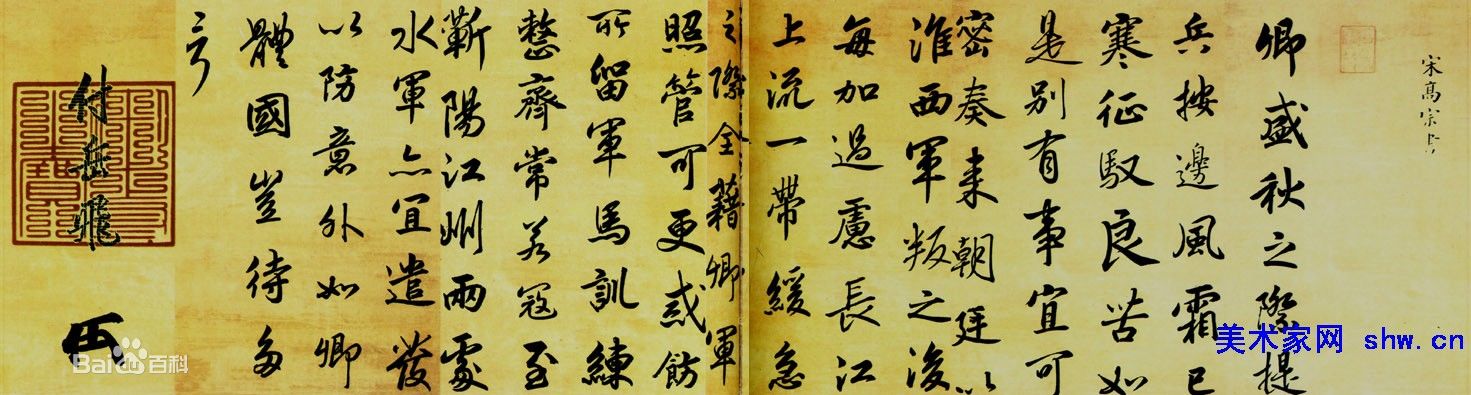 宋高宗书
卿盛秋之際提
兵按邊風霜已
寒征馭良苦如
是別有事宜可
密奏来朝廷以
淮西軍叛之後
每加過慮長江
上流一帶緩急
之際全藉卿軍
照管可更戒飭
所留軍馬訓練
整齊常若寇至
蘄陽江州兩處
水軍亦宜遣發
以防意外如卿
體國豈待多
言
付岳飛
美术家网 shw.cn
Bai百科